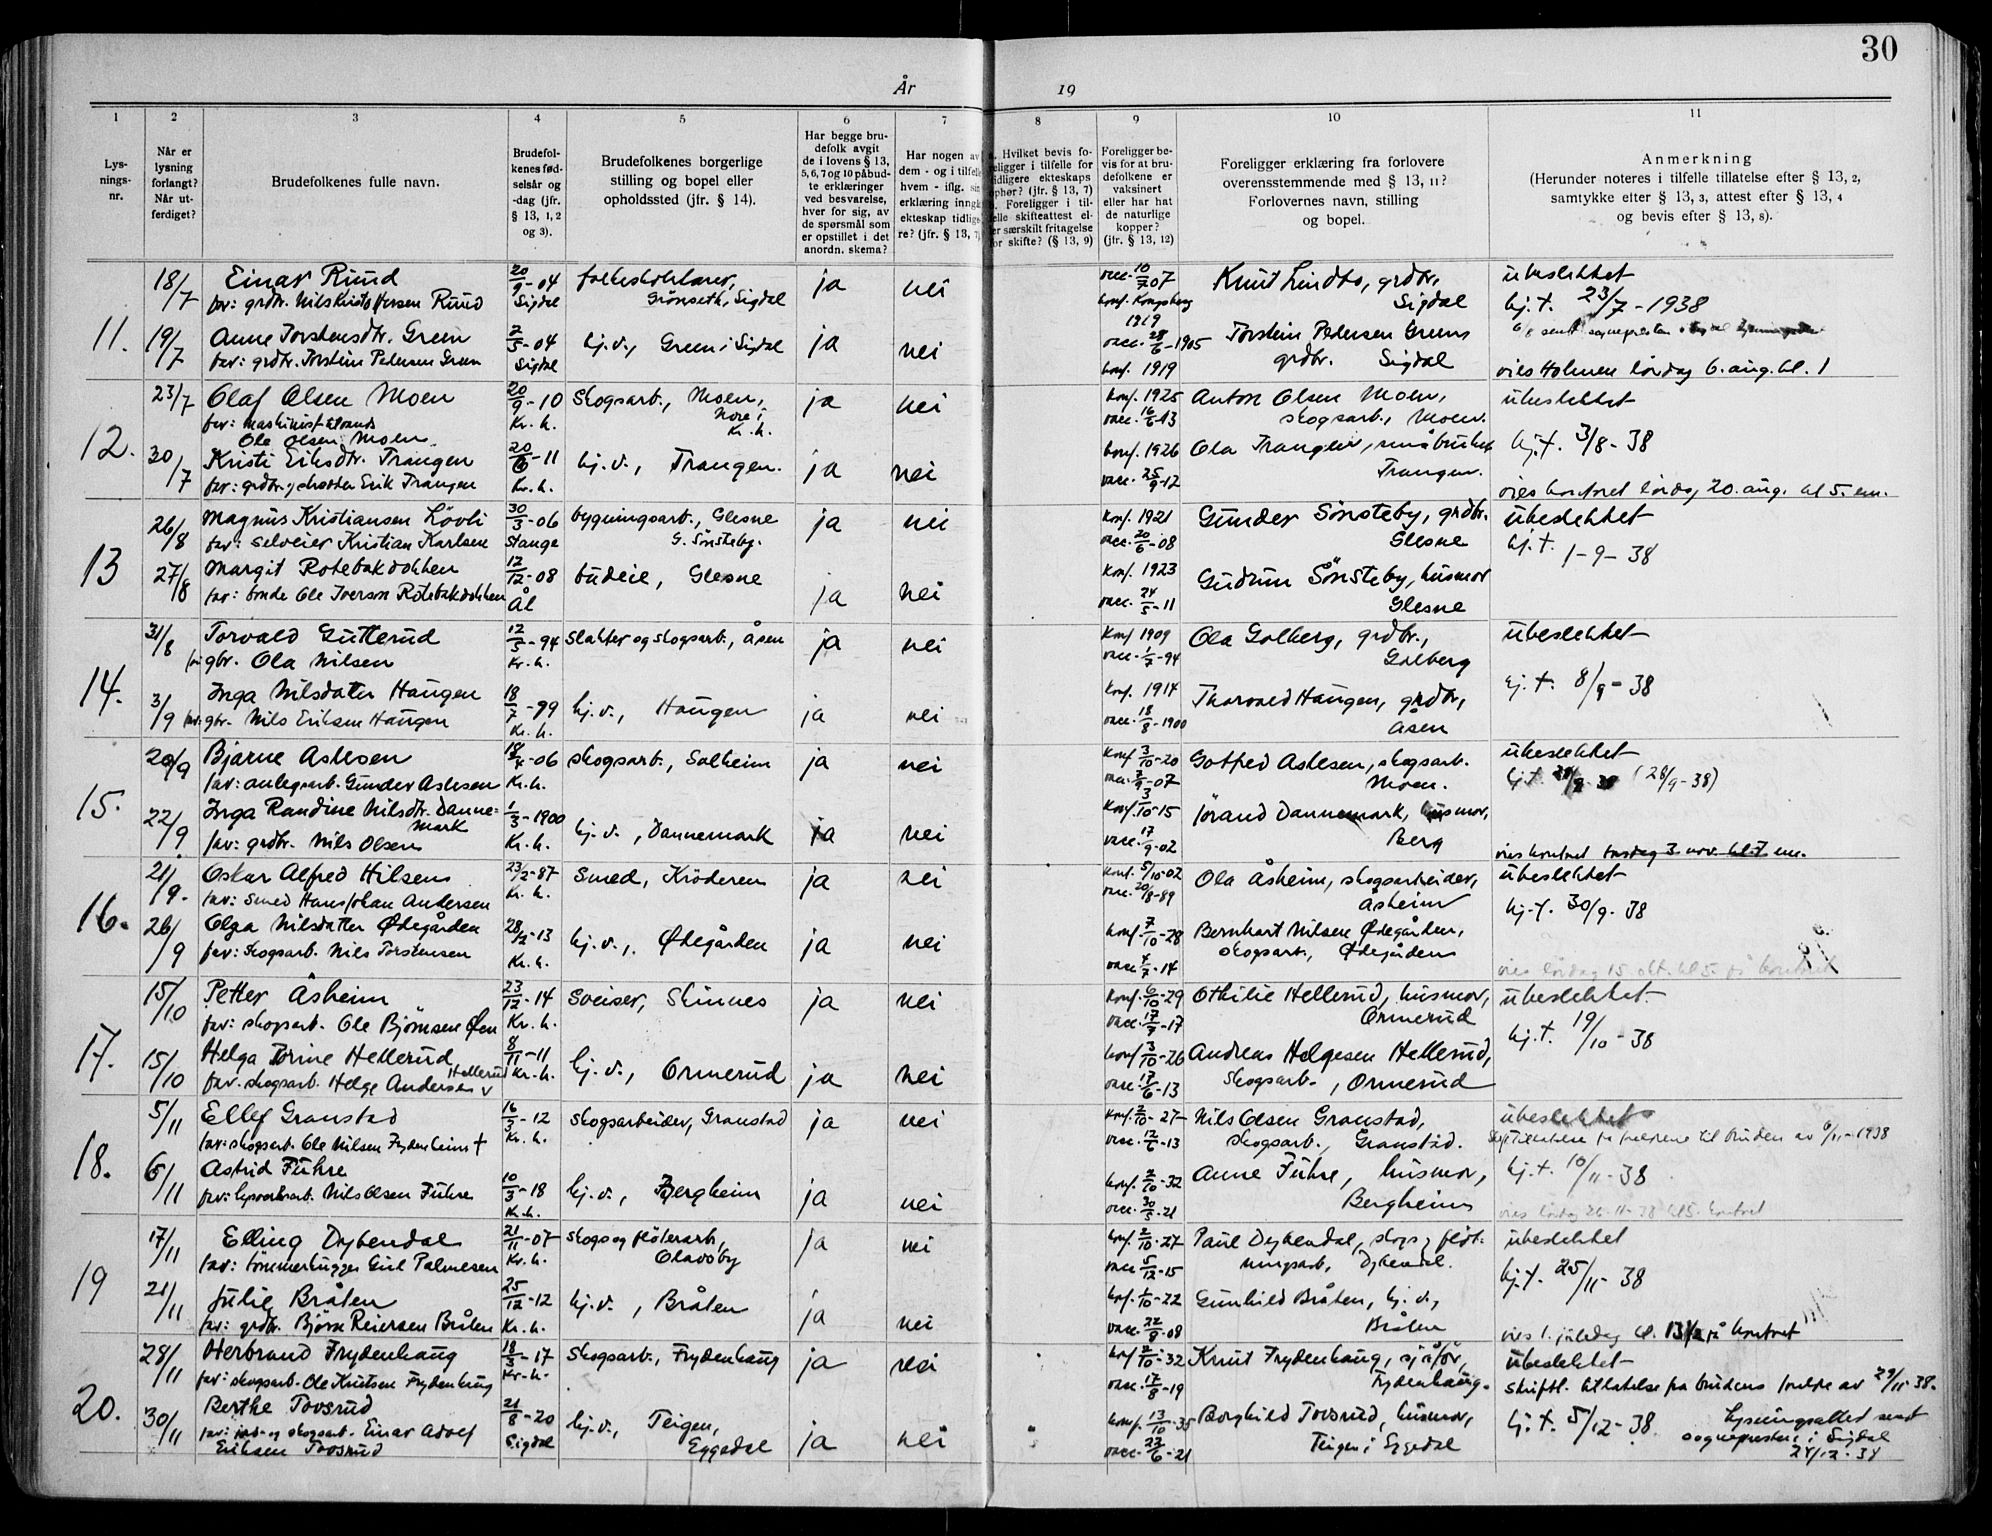 30
År 19
1 2 3 4 5 6 7 8 9 10 11
Lys-
nings-
nr.
Når er
lysning
forlangt?
Når ut-
ferdiget?
Brudefolkenes fulle navn.
Brudefol-
kenes fød-
selsår og
-dag (jfr.
§ 13, 1, 2
og 3).
Brudefolkenes borgerlige
stilling og bopel eller
opholdssted (jfr. § 14).
Har begge bru-
defolk avgit
de i lovens § 13,
5, 6, 7 og 10 påbud-
te erklæringer
ved besvarelse,
hver for sig, av
de spørsmål som
er opstillet i det
anordn. skema?
Har nogen av
dem - og i tilfelle
hvem - iflg. sin
erklæring inngå
ekteskap tidlige
re? (jfr. § 13, 7)
. Hvilket bevis fo-
religger i tilfelle for
tidligere ekteskaps
ophør? (jfr. § 13, 7)
. Foreligger i til-
felle skifteattest el-
er særskilt fritagelse
for skifte? (§ 13, 9)
Foreligger be-
vis for at bru-
defolkene er
vaksinert
eller har hat
de naturlige
kopper?
(jfr. § 13, 12)
Foreligger erklæring fra forlovere
overensstemmende med § 13, 11?
Forlovernes navn, stilling
og bopel.
Anmerkning
(Herunder noteres i tilfelle tillatelse efter § 13, 2,
samtykke etter § 13, 3, attest efter § 13, 4
og bevis efter § 13, 8).
11.
18/7 Einar Ruud 20/9-04 folkeskolelærer, ja nei vacc. 10/7 07 Knut Lindbo, grdbr, ubeslektet
far: grdbr. Nils Ruud Sigdal Grønseth, Sigdal konf. Kongsberg 1919 Sigdal lj.t. 23/7-1938
19/7 Anne Torstensdtr. Green 2/5-04 hj.v., Green i Sigdal ja nei vacc. 28/6-1905 Torstein Pedersen Green
far: grdbr. Torstein Pedersen Green Sigdal konf. 1919 grdbr. Sigdal vies Holmen lørdag 6. aug. kl. 1
12.
23/7 Olaf Olsen Moen 20/9-10 Skogsarb., Moen, ja nei konf. 1925 Anton Olsen Moen, ubeslektet
far: maskinist Ole Olsen Moen Kr.h. Nore i Kr.h. vacc. 16/6-13 skogsarb., Moen.
30/7 Kristi Eriksdtr. Trangen 20/6-11 hj.v., Trangen. ja nei konf. 1926 Ola Trangen, småbruker lj.t. 3/8-38
far: grdbr. Erik Trangen Kr.h. vacc. 25/9-12 Trangen. vies kontoret lørdag 20. aug. kl 5. em.
13
26/8 Magnus Kristiansen Lövli 30/3-06 bygningsarb., Glesne ja nei Konf. 1921 Gunder Sønsteby, grdbr. ubeslektet
far: selveier Kristian Karlsen Stange G. Sønsteby. vacc. 20/6-08 Glesne lj.t. 1-9-38
27/8 Margit Rotebakdokken 12/12-08 budeie, Glesne ja nei Konf. 1923 Gudrun Sønsteby, husmor
far: bonde Ole Iverson Rotebakdokken Ål vacc. 24/5-11 Glesne
14.
31/8 Torvald Gutterud 12/5-94 slakter og skogsarb., Åsen ja nei Konf 1909 Ola Golberg, grdbr., ubeslektet
gbr. Ola Nilsen Kr.h. vacc. 1/7-94 Golberg
3/9 Inga Nilsdatter Haugen 18/7-99 hj.v., Haugen ja nei Konf. 1914 Thorvald Haugen, grdbr, lj.t. 8/9-38
far: gbr. Nils Eriksen Haugen Kr.h. vacc. 18/8-1900 Åsen
15.
20/9 Bjarne Aslesen 18/4-06 skogsarb., Solheim ja nei Konf 3/10-20 Gotfred Aslesen, skogsarb. ubeslektet
far: anlegsarb. Gunder Aslesen Kr.h. vacc. 3/9-07 Moen. (28/9-38)
22/9 Inga Randine Nilsdtr. Dannemark 1/3-1900 hj.v., Dannemark ja nei Konf 3/10-15 Jørand Dannemark, husmor,
far: grdbr. Nils Olsen Kr.h. vacc. 17/9-02 Berg vies kontoret torsdag 3. nov. kl. 7 em.
16.
21/9. Oskar Alfred Hilsen 23/2-87 Smed, Krøderen ja nei konf. 5/10-02 Ola Åsheim, skogsarbeider, ubeslektet
far: smed Hans Johan Andersen Kr.h. vacc. 20/8-89 Åsheim lj.t. 30/9-38
26/9 Olga Nilsdatter Ødegården 28/2-13 hj.v., Ødegården ja nei konf. 7/10-28 Bernhart Nilsen Ødegården,
far: skogsarb. Nils Torstensen Kr.h. vacc. 4/7-14 skogsarb., Ødegården vies lørdag 15. okt. kl 5. på kontoret
17.
15/10 Petter Åsheim 23/12-14 Sveiser, Skinnes ja nei Konf. 6/10-29 Othilie Hellerud, husmor, ubeslektet.
far: skogsarb. Ole Bjørnsen Øen Kr.h. vacc. 17/7-17 Ormerud lj.t. 19/10-38
15/10 Helga Torine Hellerud 8/11-11 hj.v., Ormerud ja nei konf 3/10-26 Andreas Helgesen Hellerud,
far: skogsarb. Helge Andersen Hellerud Kr.h. vacc. 17/6-13 Skogsarb., Ormerud
18.
5/11 Ellef Granstad 16/3-12 Skogsarbeider, Granstad ja nei Konf. 2/10-27 Nils Olsen Granstad, ubeslektet
far: skogsarb. Ole Nilsen Frydenheim + Kr.h. vacc. 12/6-13 skogsarb., Granstad. til bruden av 6/11-1938
6/11 Astrid Fuhre 10/3-18 hj.v., Bergheim ja nei konf. 2/10-32 Anne Fuhre, husmor, lj.t. 10/11-38
far: Nils Olsen Fuhre Kr.h. vacc. 30/5-21 Bergheim vies lørdag 26-11-38 kl 5. kontoret
19
17/11 Elling Dybendal 21/11-07 Skogs og fløterarb, ja nei konf. 2/10-27 Paul Dybendal, skogs og fløt- ubeslektet
far: tømmerhugger Palmesen Kr.h. Olavsby vacc 5/12-15 ningsarb, Dybendal.
21/11 Julie Bråten 25/12-12 hj.v., Bråten ja nei konf. 1/10-22 Gunhild Bråten, hj.v., lj.t. 25/11-38
far: grdbr. Bjørn Reiersen Bråten Kr.h. vacc. 22/8-08 Bråten vies 1. juledag kl. 13½ på kontoret
20.
28/11 Herbrand Frydenhaug 18/3-17 Skogsarb., Frydenhaug ja nei konf 2/10-32 Knut Frydenhaug, sjåfør, ubeslektet
far: skogsarb. Ole Knutsen Frydenhaug Kr.h. vacc. 17/8-19 Frydenhaug. skriftl. tillatelse fra brudens foreldre av 29/11-38.
30/11 Berthe Tovsrud 21/8-20 hj.v., Teigen, ja nei konf. 13/10-35 Borghild Tovsrud, husmor, lj.t. 5/12-38 Lysningsattest sendt
far: jord- og skogsarb. Einar Adolf Eriksen Tovsrud Sigdal Eggedal vacc. 23/6-21 Teigen i Eggedal sogneprestens i Sigdal